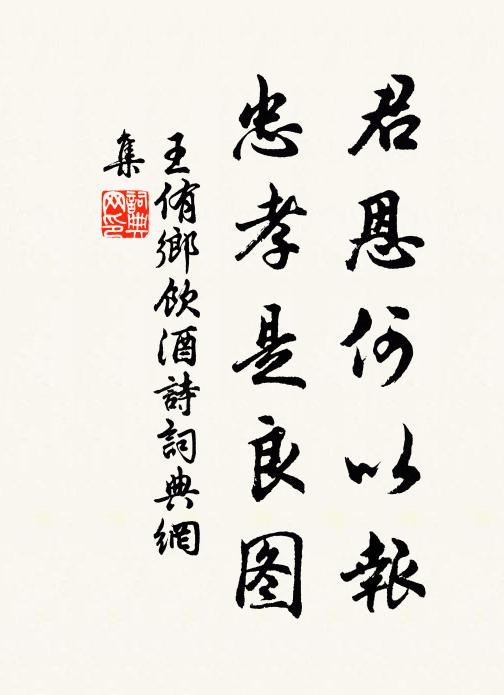 君恩何以報
忠孝是良图
王侑鄉飲酒詩詞典網
集
詞典
网印